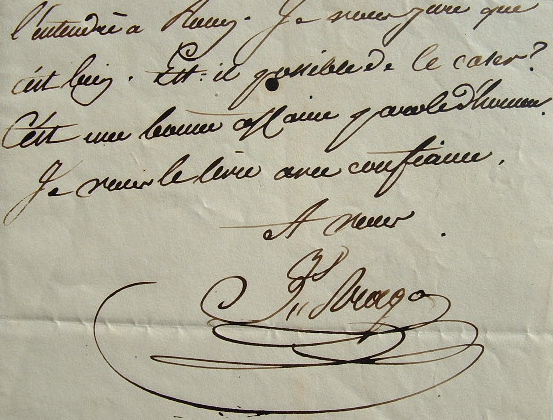 l'entendre à Rouen. Je vous jure que
c'est bien. Est-il possible de le caser?
C'est une bonne affaire parole d'honneur.
Je vous le livre avec confiance.
A vous
Arago